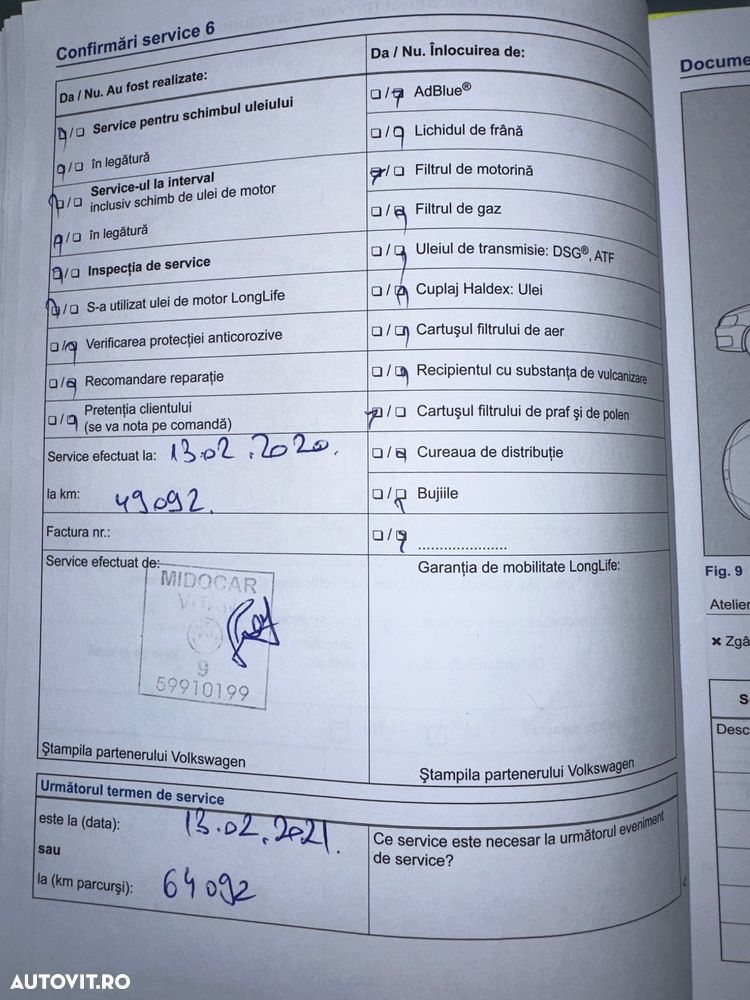 Confirmări service 6
Da / Nu. Au fost realizate:
☐/☐ Service pentru schimbul uleiului
☐/☐ în legătură
☐/☐ Service-ul la interval
inclusiv schimb de ulei de motor
☐/☐ în legătură
☐/☐ Inspecția de service
☐/☐ S-a utilizat ulei de motor LongLife
☐/☐ Verificarea protecției anticorozive
☐/☐ Recomandare reparație
☐/☐ Pretenția clientului
(se va nota pe comandă)
Service efectuat la: 13.02.2020.
la km: 49092.
Factura nr.:
Service efectuat de:
MIDOCAR
9
59910199
Ștampila partenerului Volkswagen
Da / Nu. Înlocuirea de:
☐/☐ AdBlue®
☐/☐ Lichidul de frână
☐/☐ Filtrul de motorină
☐/☐ Filtrul de gaz
☐/☐ Uleiul de transmisie: DSG®, ATF
☐/☐ Cuplaj Haldex: Ulei
☐/☐ Cartușul filtrului de aer
☐/☐ Recipientul cu substanța de vulcanizare
☐/☐ Cartușul filtrului de praf și de polen
☐/☐ Cureaua de distribuție
☐/☐ Bujiile
☐/☐ ......................
Garanția de mobilitate LongLife:
Ștampila partenerului Volkswagen
Următorul termen de service
este la (data): 13.02.2021.
sau
la (km parcurși): 64092
Ce service este necesar la următorul eveniment
de service?
Docume
Fig. 9
Atelier
✖ Zgâ
S
Desc
AUTOVIT.RO